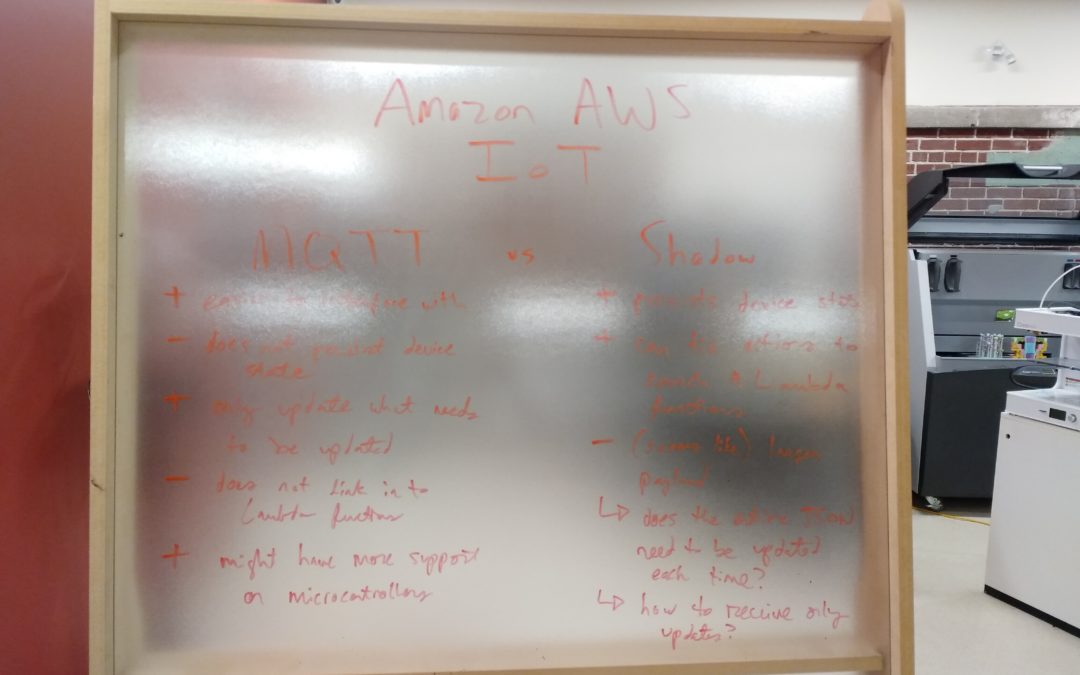 Amazon AWS
IoT
MQTT vs Shadow
+ easier to interface with
- does not persist device
state
+ only update what needs
to be updated
- does not link in to
Lambda functions
+ might have more support
on microcontrollers
+ persists device state
+ can tie actions to
Lambda
functions
- (seems like) larger
payload
↳ does the entire JSON
need to be updated
each time?
↳ how to receive only
updates?